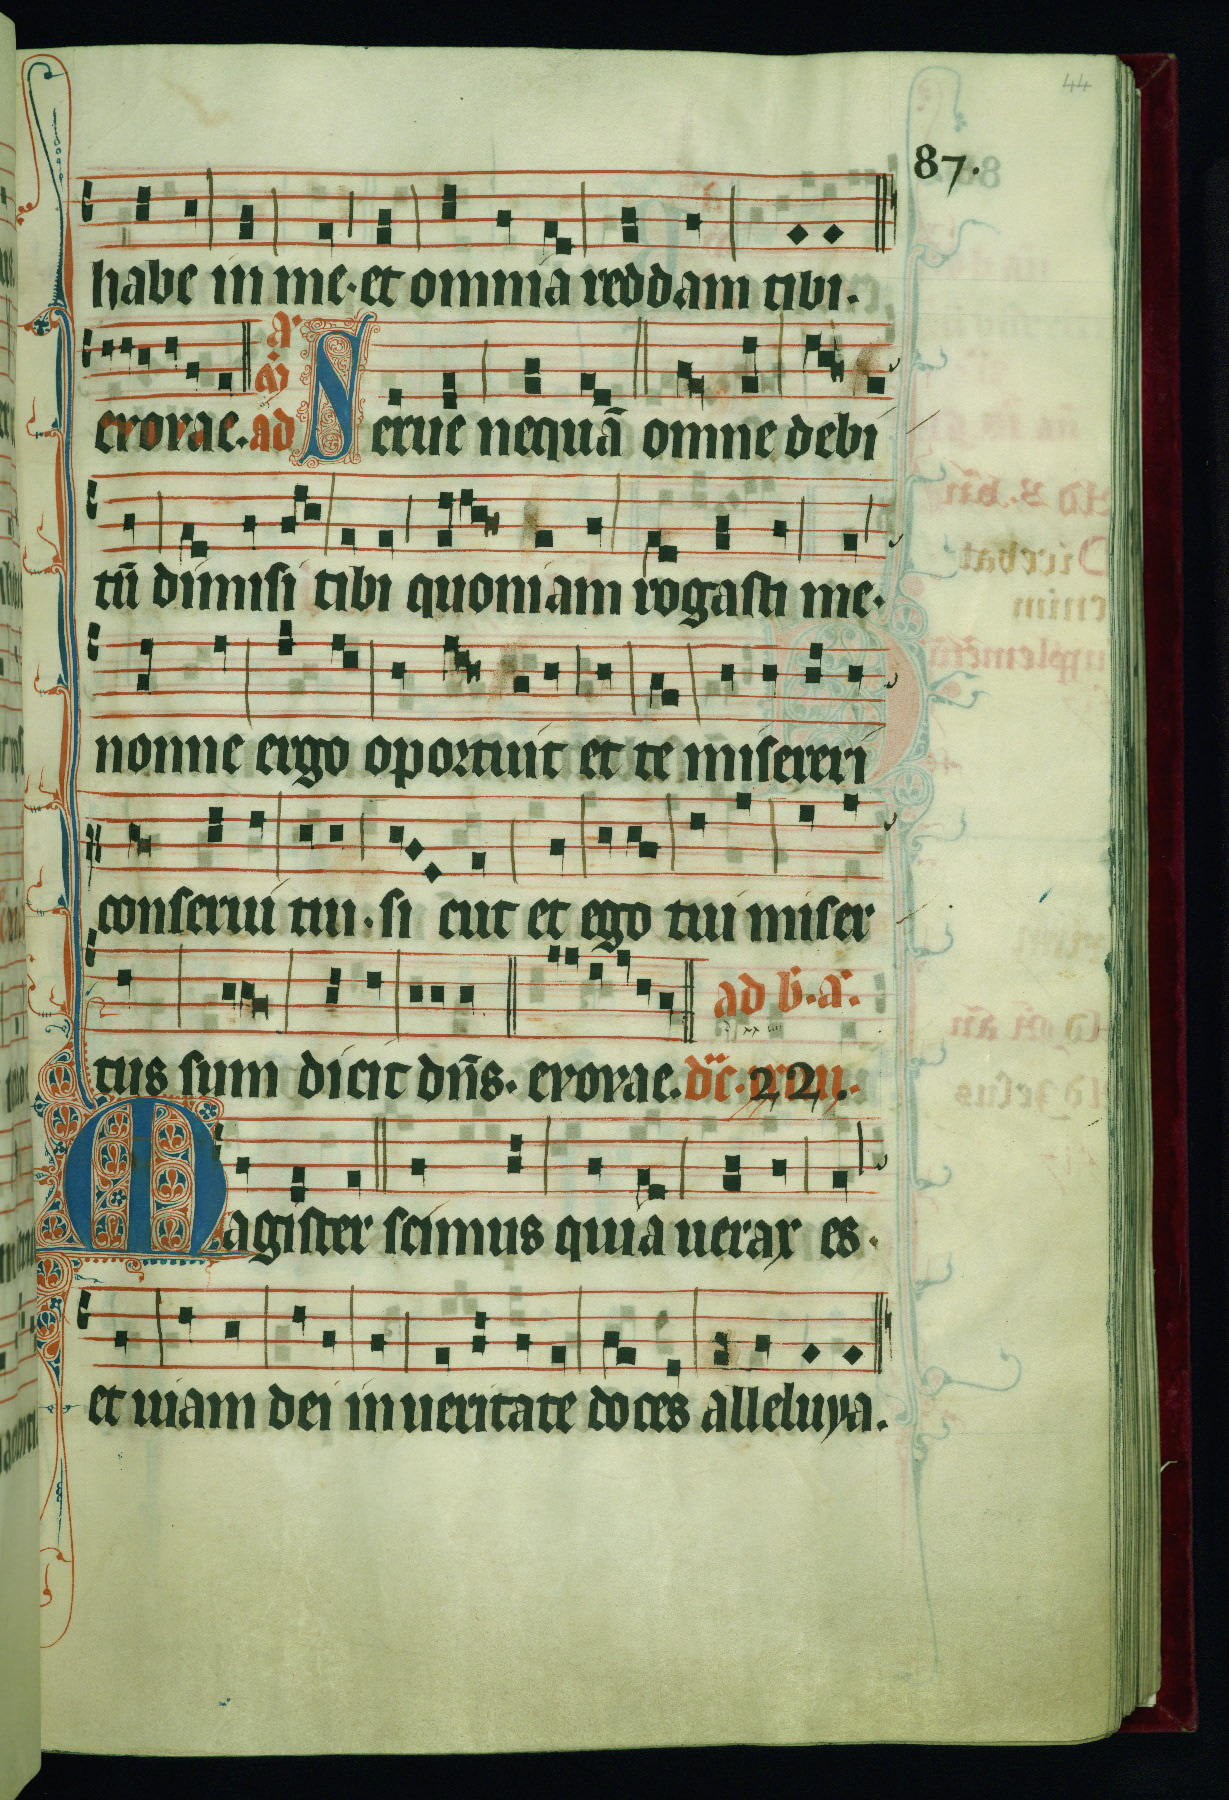 44
87.
habe in me·et omnia reddam tibi.
a᷑
evovae. ad M̄ Serue nequā omne debi
tū dimisi tibi quoniam rogasti me·
nonne ergo oportuit et te misereri
conserui tui·si cut et ego tui miser
ad b̄·a᷑·
tus sum dicit dn̄s· evovae. dc̄· 22.
Magister scimus quia uerax es·
et uiam dei in ueritate doces alleluya.